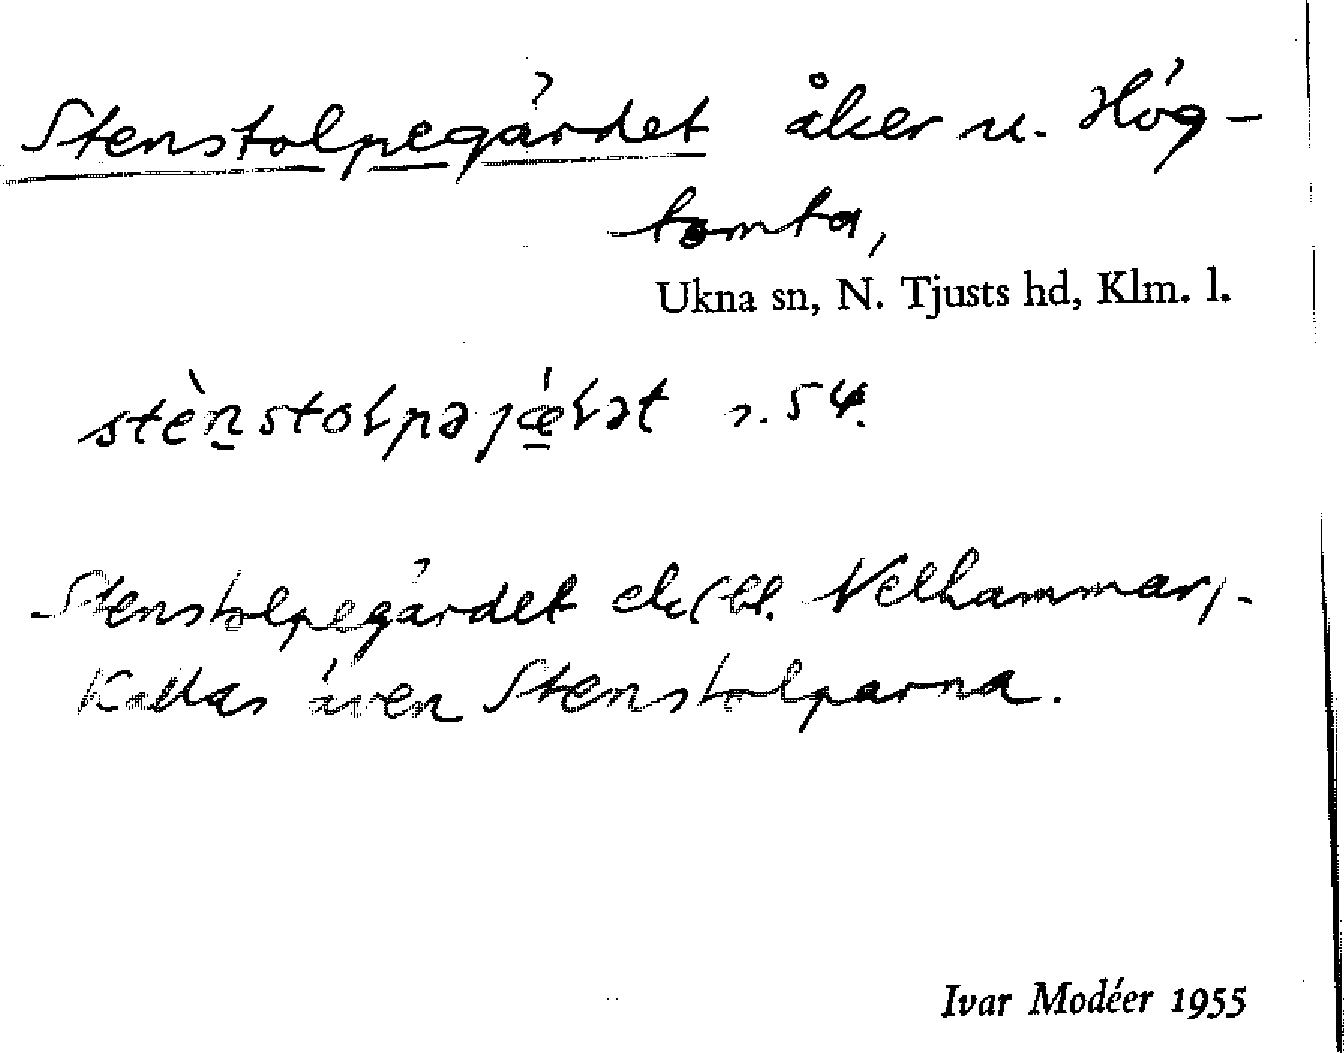 Stenstolpegärdet åker u. Hög-
tomta,
Ukna sn, N. Tjusts hd, Klm. l.
stèn̲stoɽpəjǽ̲ɽət s. 54.
Stenstolpegärdet Nelhammar,
Kallas även Stenstolparna.
Ivar Modéer 1955